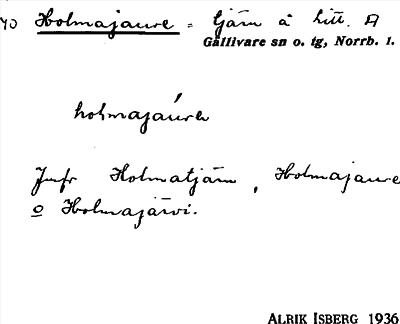 40 Holmajaure = tjärn å litt. A
Gällivare sn o. tg, Norrb. l.
holmajaúre
Jmfr Holmatjärn, Holmajaure
o Holmajärvi.
ALRIK ISBERG 1936